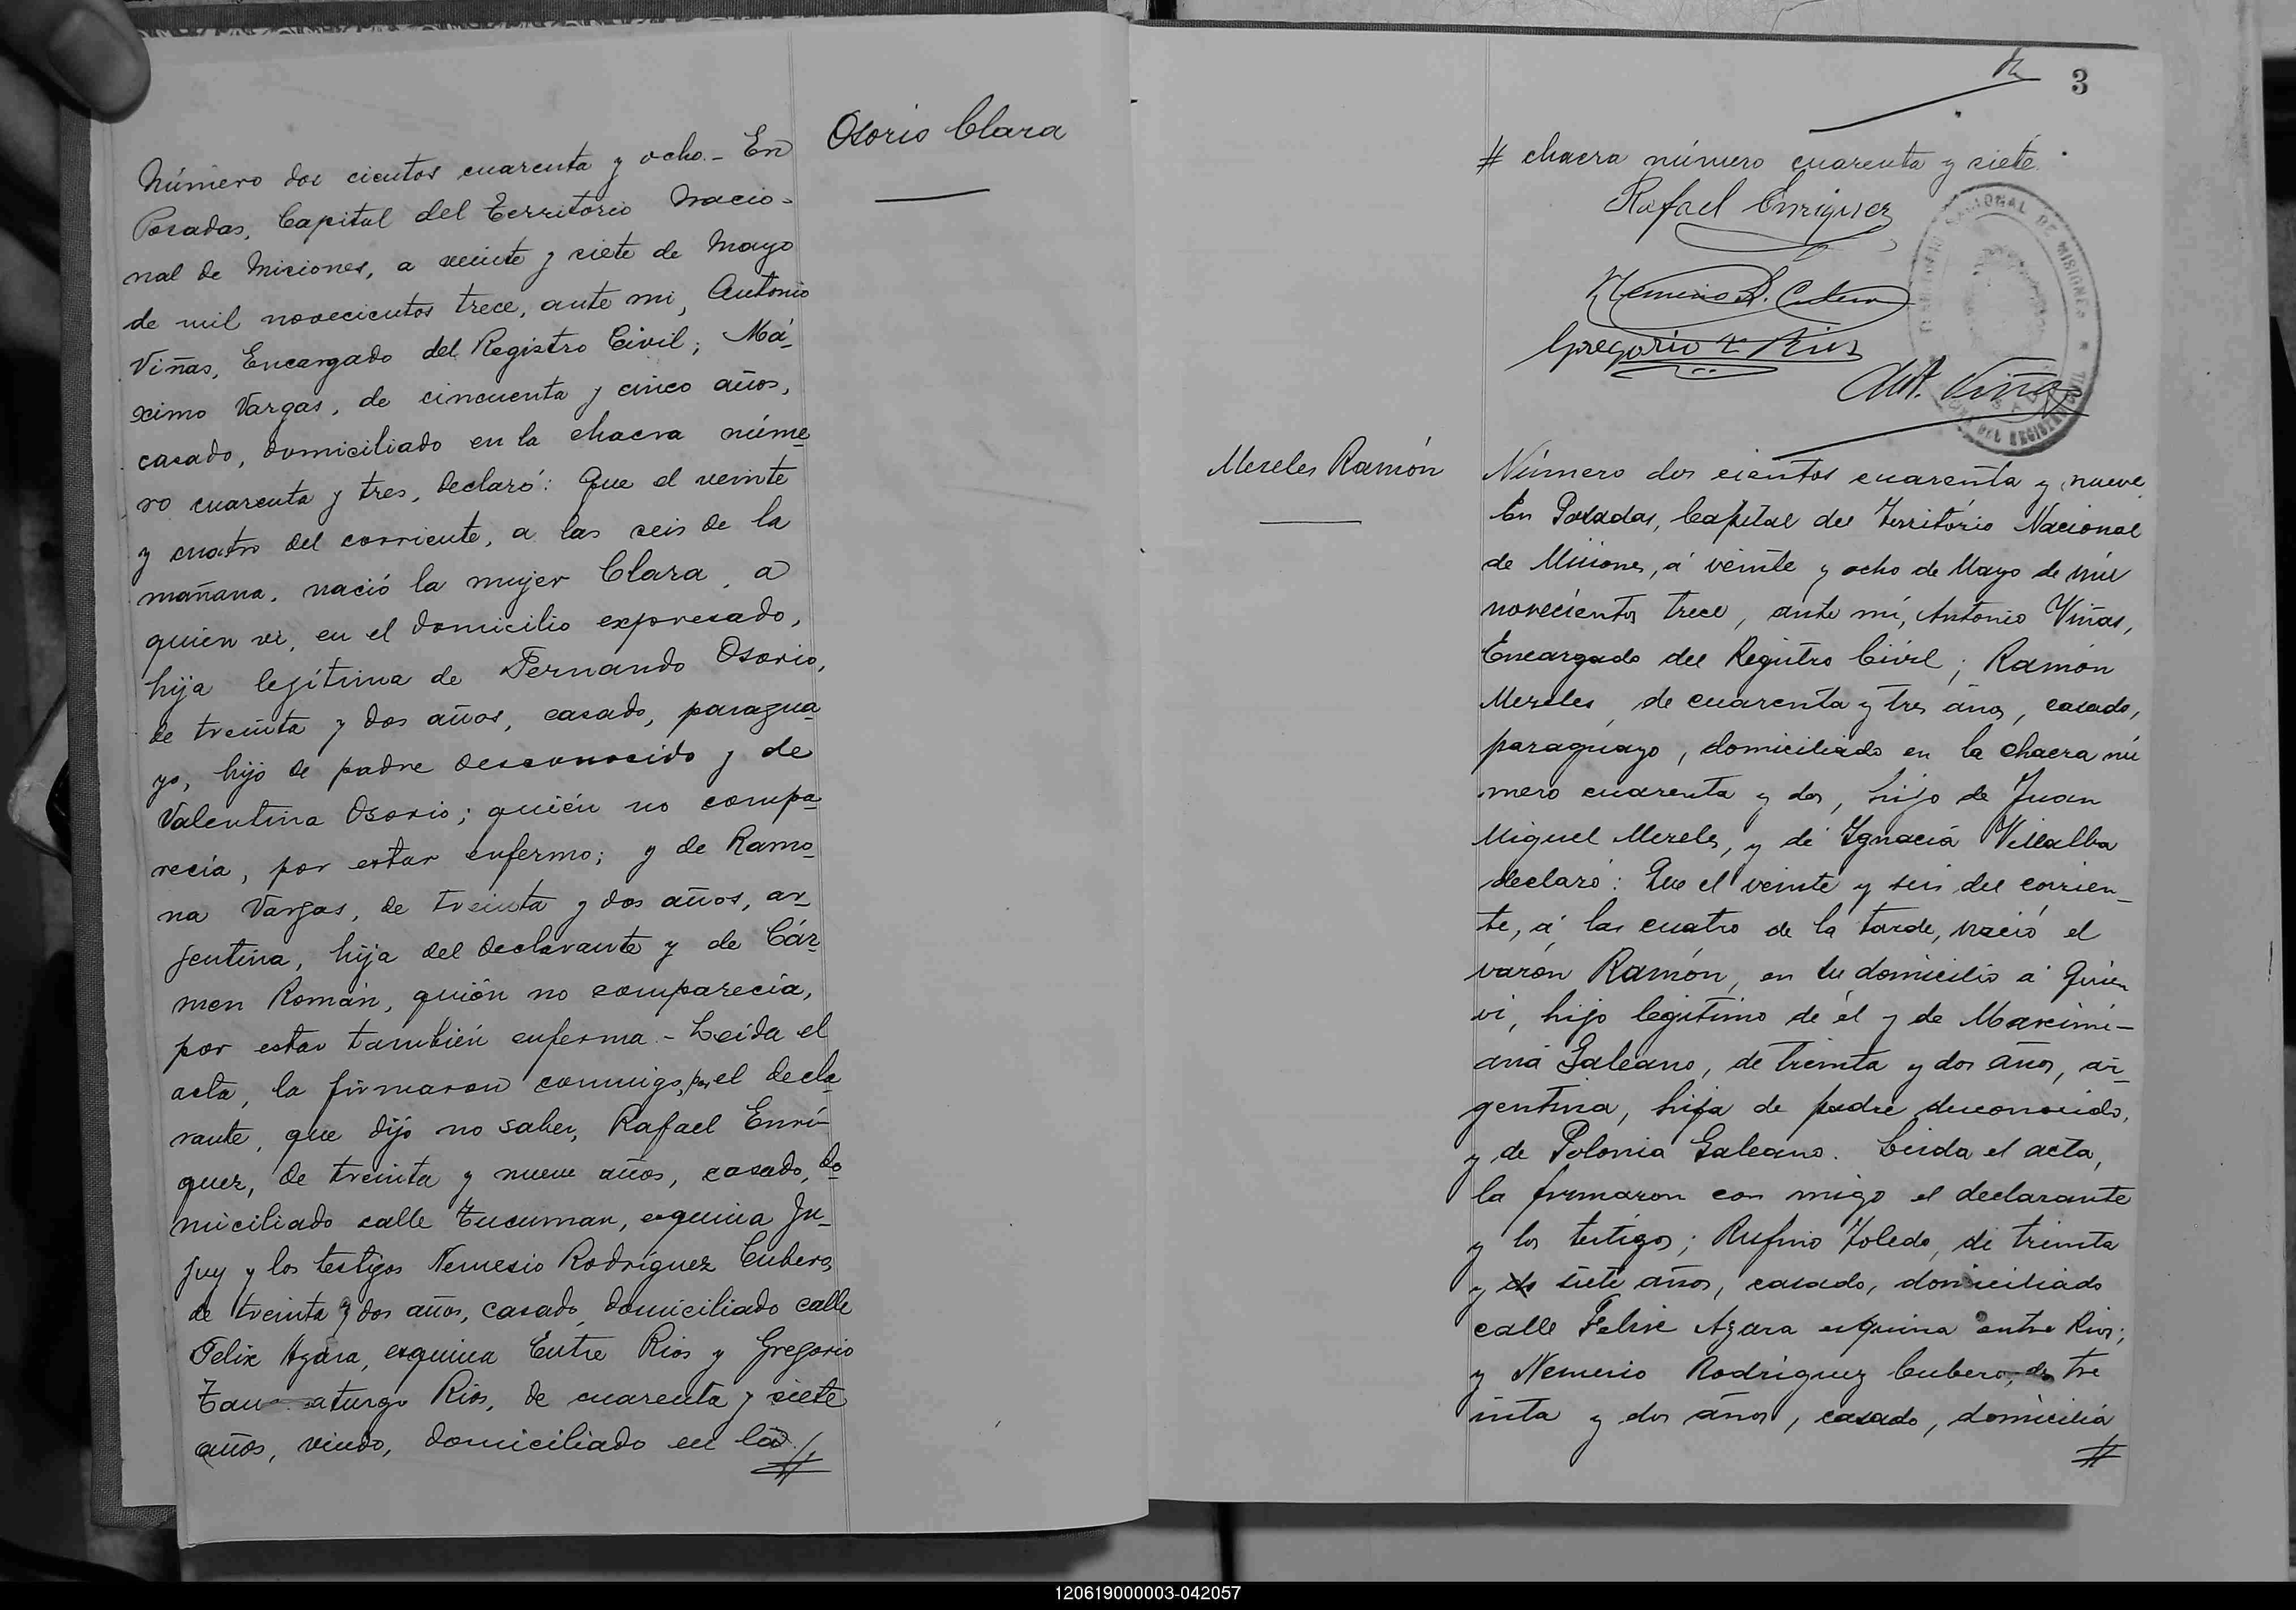 Osorio Clara
Número dos cientos cuarenta y ocho.- En
Posadas, Capital del Territorio Nacio-
nal de Misiones, a veinte y siete de Mayo
de mil novecientos trece, ante mi, Antonio
Viñas, Encargado del Registro Civil; Má-
ximo Vargas, de cincuenta y cinco años,
casado, domiciliado en la chacra núme-
ro cuarenta y tres, declaró: Que el veinte
y cuatro del corriente, a las seis de la
mañana, nació la mujer Clara, a
quien vi, en el domicilio expresado,
hija legítima de Fernando Osorio,
de treinta y dos años, casado, paragua-
yo, hijo de padre desconocido y de
Valentina Osorio; quién no compa-
recía, por estar enfermo; y de Ramo-
na Vargas, de treinta y dos años, ar-
gentina, hija del declarante y de Cár-
men Román, quién no comparecía,
por estar también enferma.- Leída el
acta, la firmaron conmigo, por el decla-
rante, que dijo no saber, Rafael Enrí-
quez, de treinta y nueve años, casado, do-
miciliado calle Tucuman, esquina Ju-
juy y los testigos Nemesio Rodríguez Cubero,
de treinta y dos años, casado, domiciliado calle
Felix Azara, esquina Entre Rios y Gregorio
Taumaturgo Rios, de cuarenta y siete
años, viudo, domiciliado en la #
3
# chacra número cuarenta y siete.
Rafael Enriquez
Nemesio R. Cubero
Gregorio T. Rios
Ant. Viñas
NACIONAL DE MISIONES
DEL REGISTRO
Mereles Ramón
Número dos cientos cuarenta y nueve
En Posadas, Capital del Territorio Nacional
de Misiones, á veinte y ocho de Mayo de mil
novecientos trece, ante mí, Antonio Viñas,
Encargado del Registro Civil; Ramón
Mereles, de cuarenta y tres años, casado,
paraguayo, domiciliado en la chacra nú
mero cuarenta y dos, hijo de Juan
Miguel Mereles, y de Ignacia Villalba
declaró: Que el veinte y seis del corrien-
te, á las cuatro de la tarde, nació el
varón Ramón, en su domicilio á quien
vi, hijo legítimo de él y de Maximi-
ana Galeano, de treinta y dos años, ar-
gentina, hija de padre desconocido,
y de Polonia Galeano. Leida el acta,
la firmaron con migo el declarante
y los testigos; Rufino Toledo, de treinta
y siete años, casado, domiciliado
calle Felix Azara esquina entre Rios;
y Nemesio Rodriguez Cubero, de tre
inta y dos años, casado, domicilia
#
120619000003-042057